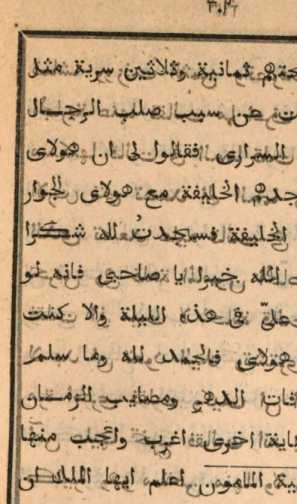 ٣٠٤
ثمانية وثلاثين سرية مثل
من سبب صلب الرجال
السرارى فقالوا لى ان هولاى
الخليفة مع هولاى الجوار
الخليفة فسجدت لله شكرا
الله خيرا يا صاحبى فانه لو
علىّ فى هذه الليلة والا كنت
هولاى فالحمد لله وما سلم
الدهر ومصايب الزمان
اخرى اغرب واعجب منها
المامون اعلم ايها الملك ان